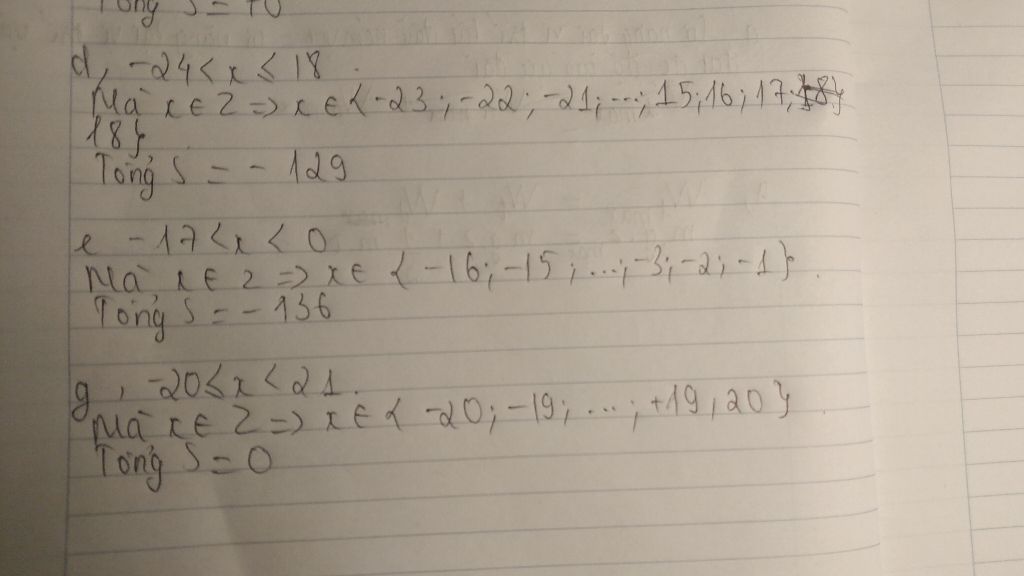 Tổng S = 70
d, -24 < x ≤ 18.
Mà x ∈ Z => x ∈ { -23; -22; -21; ...; 15; 16; 17;
18}
Tổng S = - 129
e -17 < x < 0
Mà x ∈ Z => x ∈ { -16; -15; ...; -3; -2; -1}.
Tổng S = - 136
g, -20 ≤ x < 21.
Mà x ∈ Z => x ∈ { -20; -19; ...; +19, 20}
Tổng S = 0